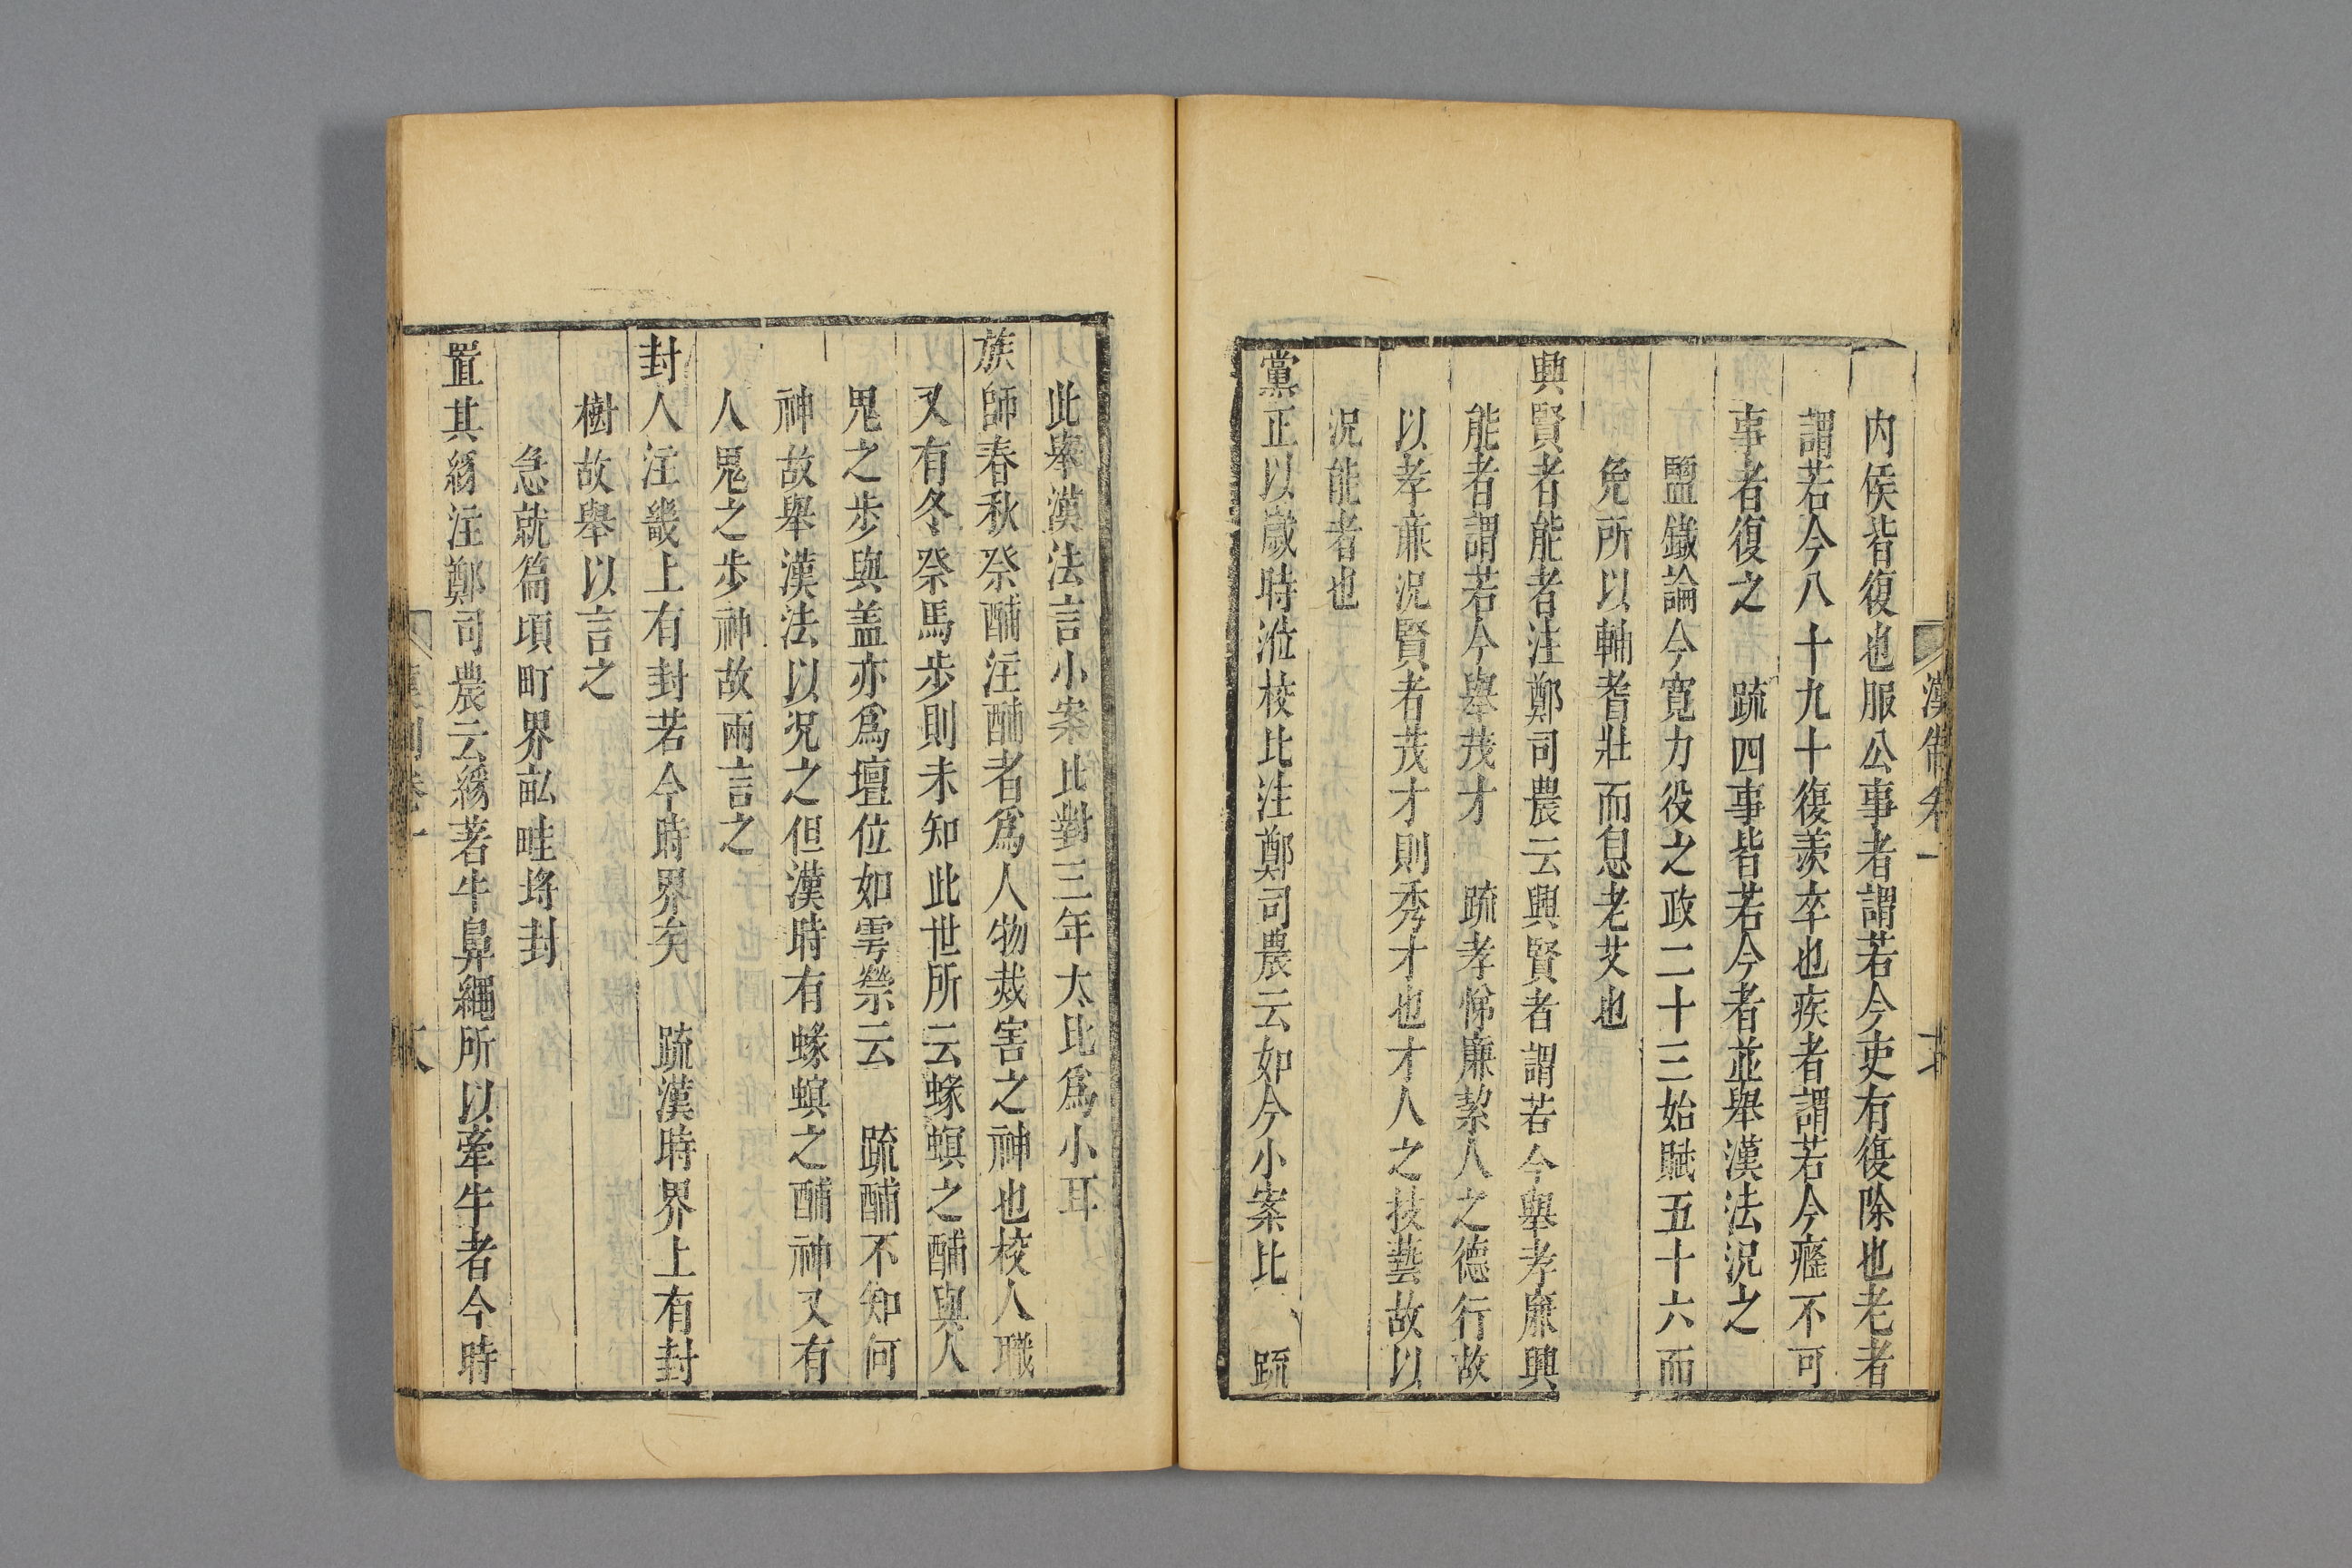 漢制
一
內侯皆復也服公事者謂若今吏有復除也老者
謂若今八十九十復羨卒也疾者謂若今癃不可
事者復之　疏四事皆若今者並舉漢法況之
鹽鐵論今寬力役之政二十三始賦五十六而
免所以輔耆壯而息老艾也
興賢者能者注鄭司農云興賢者謂若今舉孝廉興
能者謂若今舉茂才　疏孝悌廉絜人之德行故
以孝廉況賢者茂才則秀才也才人之技藝故以
況能者也
黨正以歲時涖校比注鄭司農云如今小案比　疏
此舉漢法言小案比對三年大比為小耳
族師春秋祭酺注酺者為人物烖害之神也校人職
又有冬祭馬步則未知此世所云蝝螟之酺與人
鬼之步與盖亦為壇位如雩禜云　疏酺不知何
神故舉漢法以況之但漢時有蝝螟之酺神又有
人鬼之步神故兩言之
封人注畿上有封若今時界矣　疏漢時界上有封
樹故舉以言之
急就篇頃町界畝畦埒封
置其絼注鄭司農云絼著牛鼻繩所以牽牛者今時